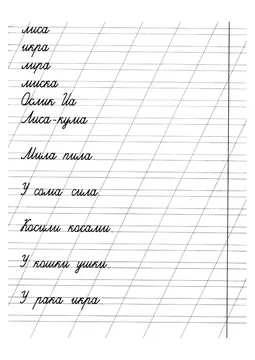 лиса
икра
лира
миска
Ослик Иа
Лиса-кума
Мила пила.
У сома сила.
Косили косами.
У кошки ушки.
У рака икра.